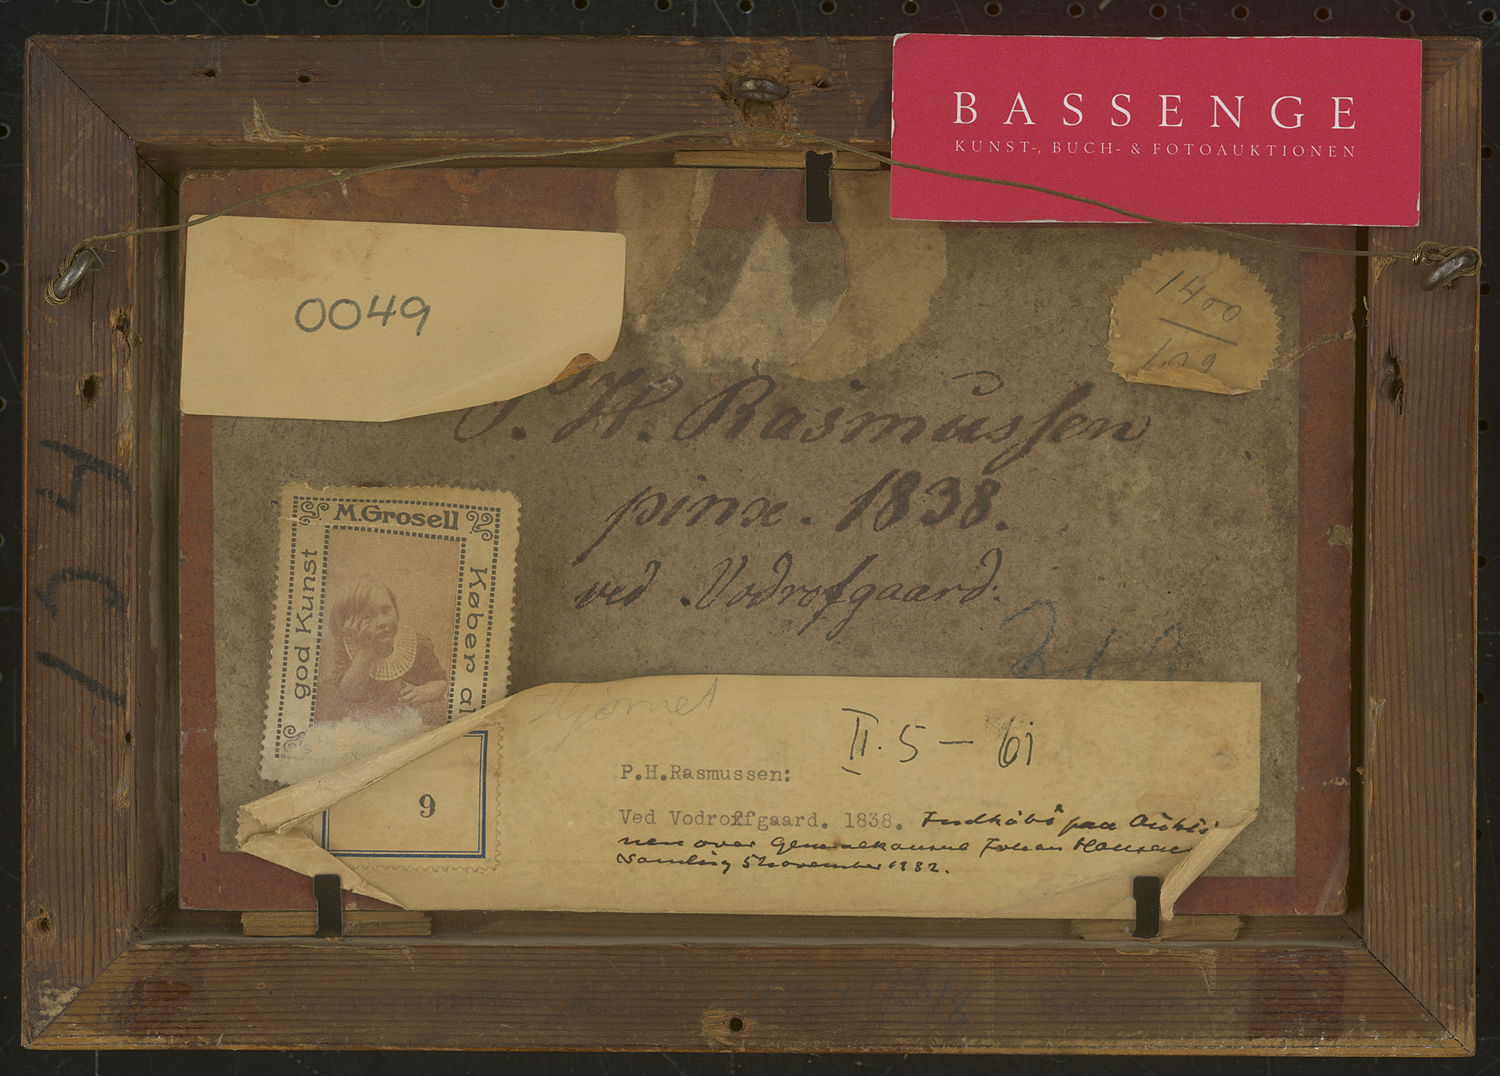 BASSENGE
KUNST-, BUCH- & FOTOAUKTIONEN
0049
1400
P. H. Rasmussen
pinx. 1838.
ved Vodrofgaard.
M.Grosell
god Kunst
Køber al
134
9
Hjørnet
II. 5 — 61
P.H.Rasmussen:
Ved Vodroffgaard. 1838. Indkøbt paa Auktio
nen over Generalkonsul Johan Hansens
Samling 5 November 1932.